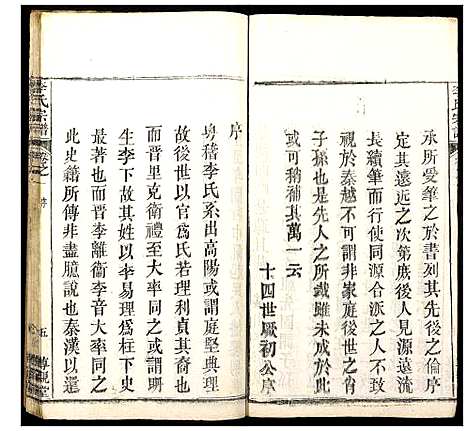 承所爱筆之於書列其先後之倫序
定其遠近之次第庶後人源遠流
長續筆而行使同源合派之人不致
視於秦越不可謂非家庭後之肖
子孫也是先人之所戴雖未成於此
或可稍補其萬一云
十四世厥初公序
李氏宗譜
序
粤稽李氏系出高陽或謂庭堅典理
故後世以官爲氏若理利貞其裔也
而晋里克衛禮至大率同之或謂明
生李下故其姓以李易理爲柱下史
最著也而晋李離衛李音大率同之
此史籍所傳非盡臆說也秦漢以還
李氏宗譜
序
五